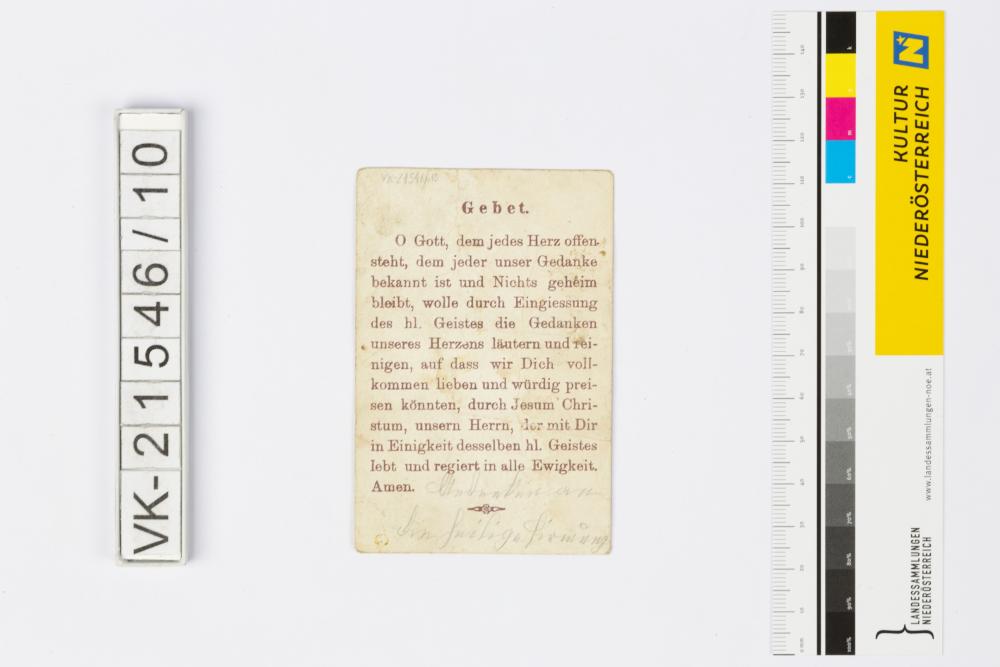 VK-21546/10
VK-21546/10
Gebet.
O Gott, dem jedes Herz offen-
steht, dem jeder unser Gedanke
bekannt ist und Nichts geheim
bleibt, wolle durch Eingiessung
des hl. Geistes die Gedanken
unseres Herzens läutern und rei-
nigen, auf dass wir Dich voll-
kommen lieben und würdig prei-
sen könnten, durch Jesum Chri-
stum, unsern Herrn, der mit Dir
in Einigkeit desselben hl. Geistes
lebt und regiert in alle Ewigkeit.
Amen.
Andenken an
die heilige Firmung
KULTUR
NIEDERÖSTERREICH
N
www.landessammlungen-noe.at
LANDESSAMMLUNGEN
NIEDERÖSTERREICH